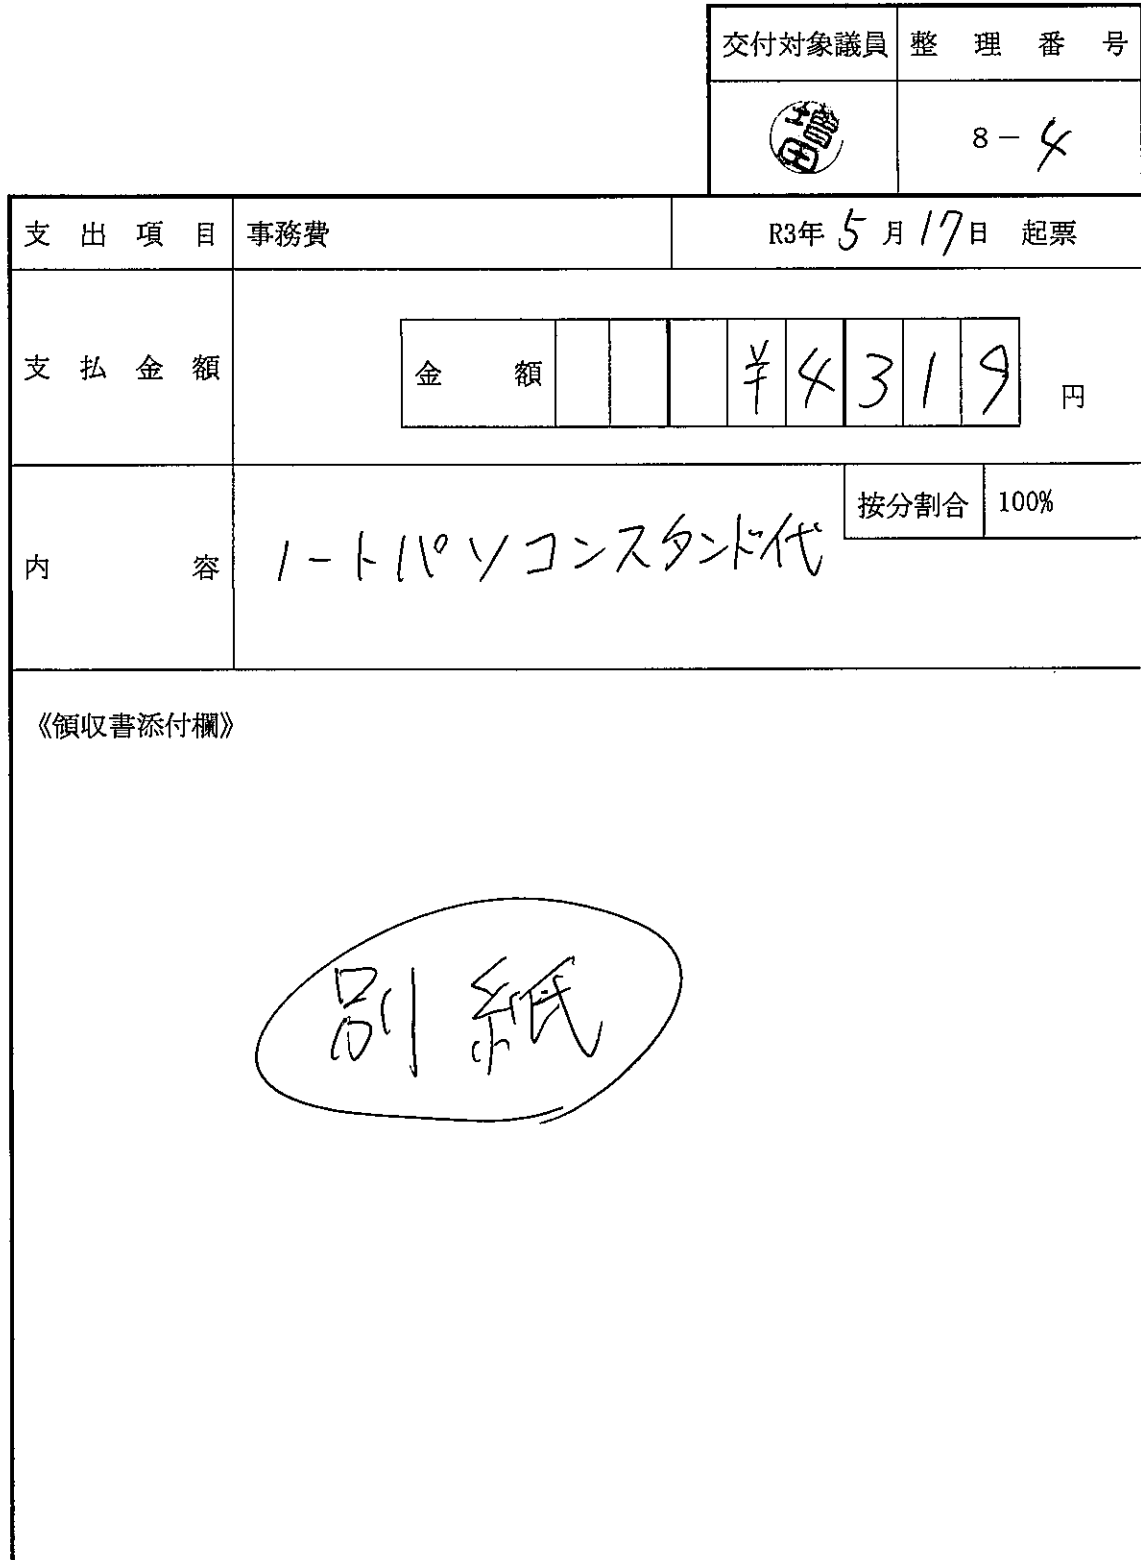 交付対象議員 整理番号
増田 8－4
支出項目 事務費 R3年5月17日 起票
支払金額 金額 ¥4319 円
按分割合 100%
内容 ノートパソコンスタンド代
《領収書添付欄》
別紙